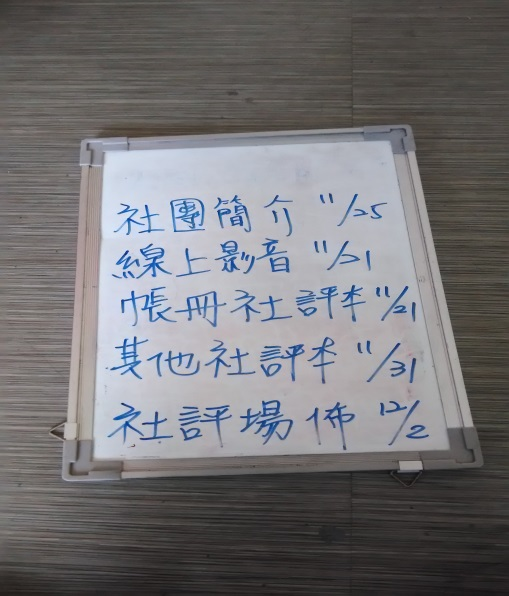 社團簡介 11/25
線上影音 11/21
帳冊社評本 11/21
其他社評本 11/31
社評場佈 12/2